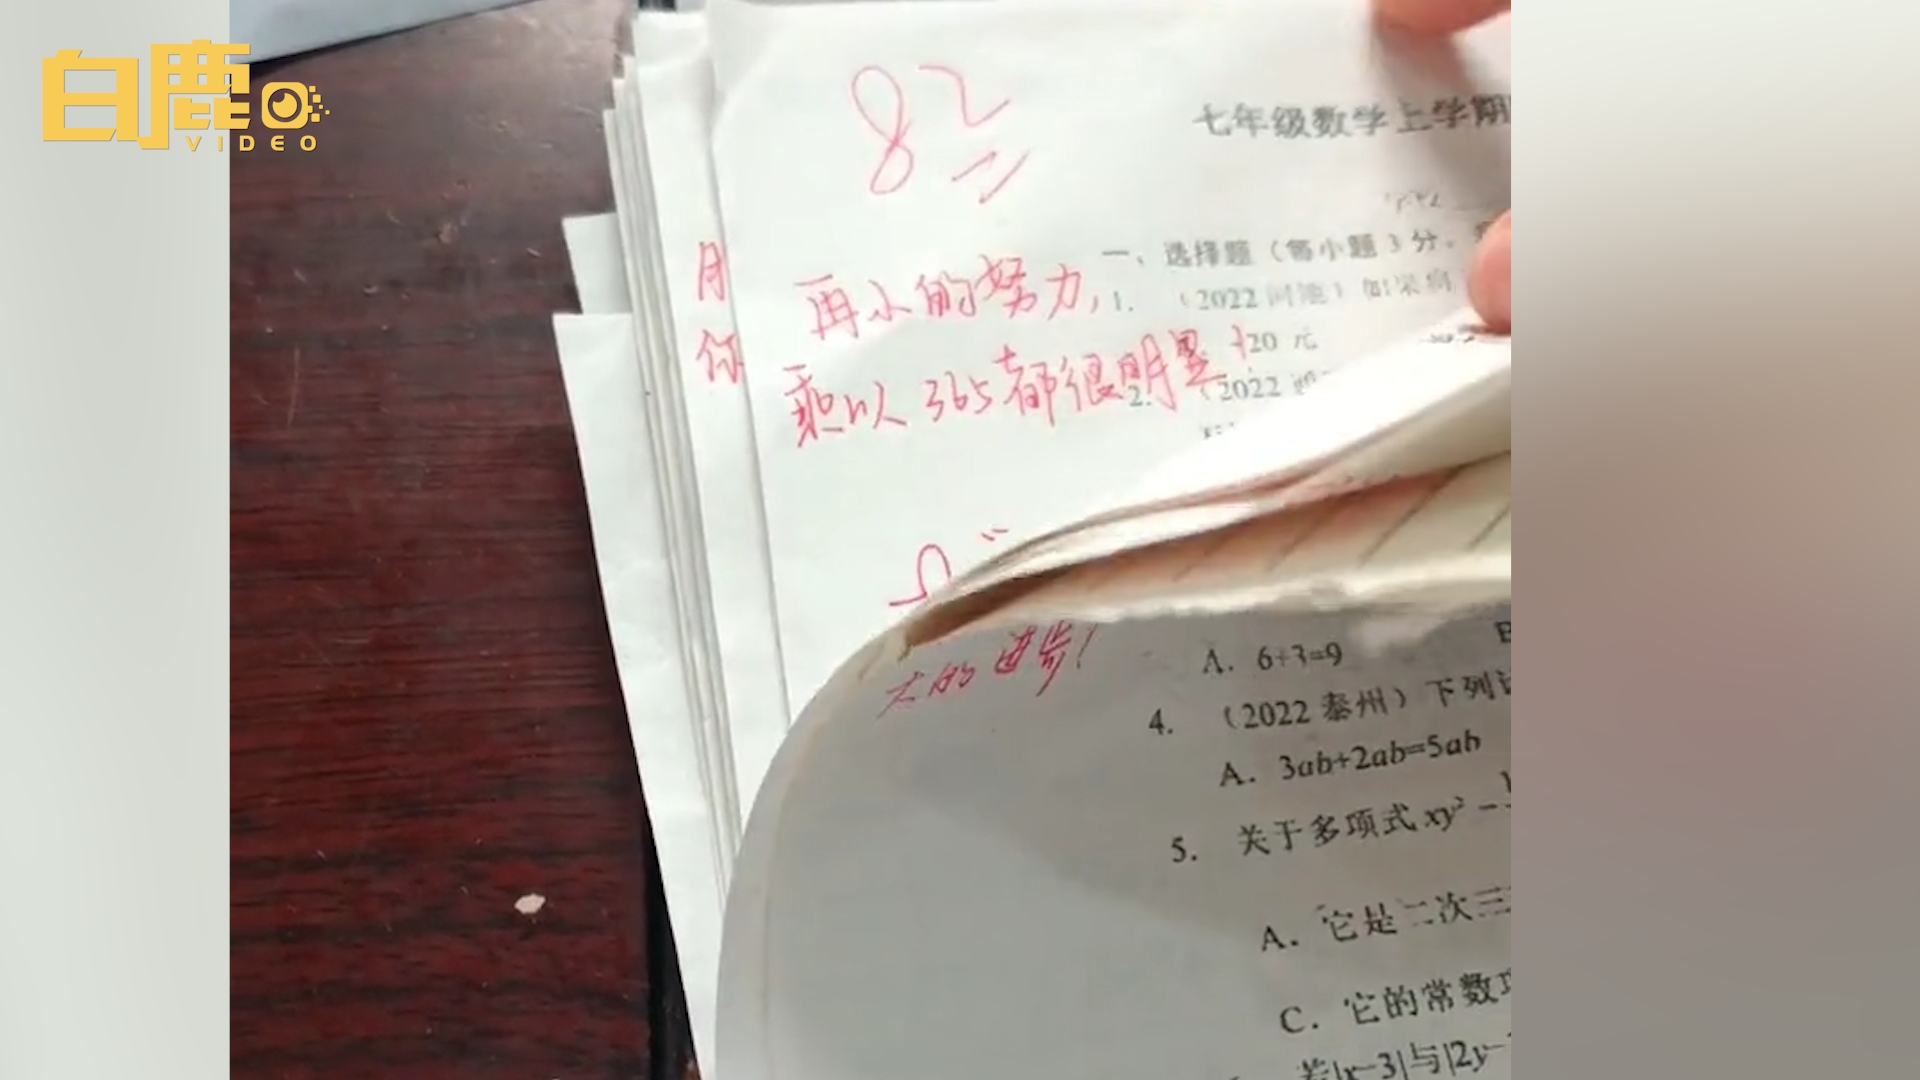 白鹿
VIDEO
82
七年级数学上学期
月
你
再小的努力,
乘以365都很明显
一、选择题(每小题3分,
1. (2022河池)如果
+20 元
2. (2022
大的进步!
A. 6÷3=9
B
4. (2022泰州)下列
A. 3ab+2ab=5ab
5. 关于多项式 xy² −
A. 它是二次三
C. 它的常数项
若|x−3|与|2y−